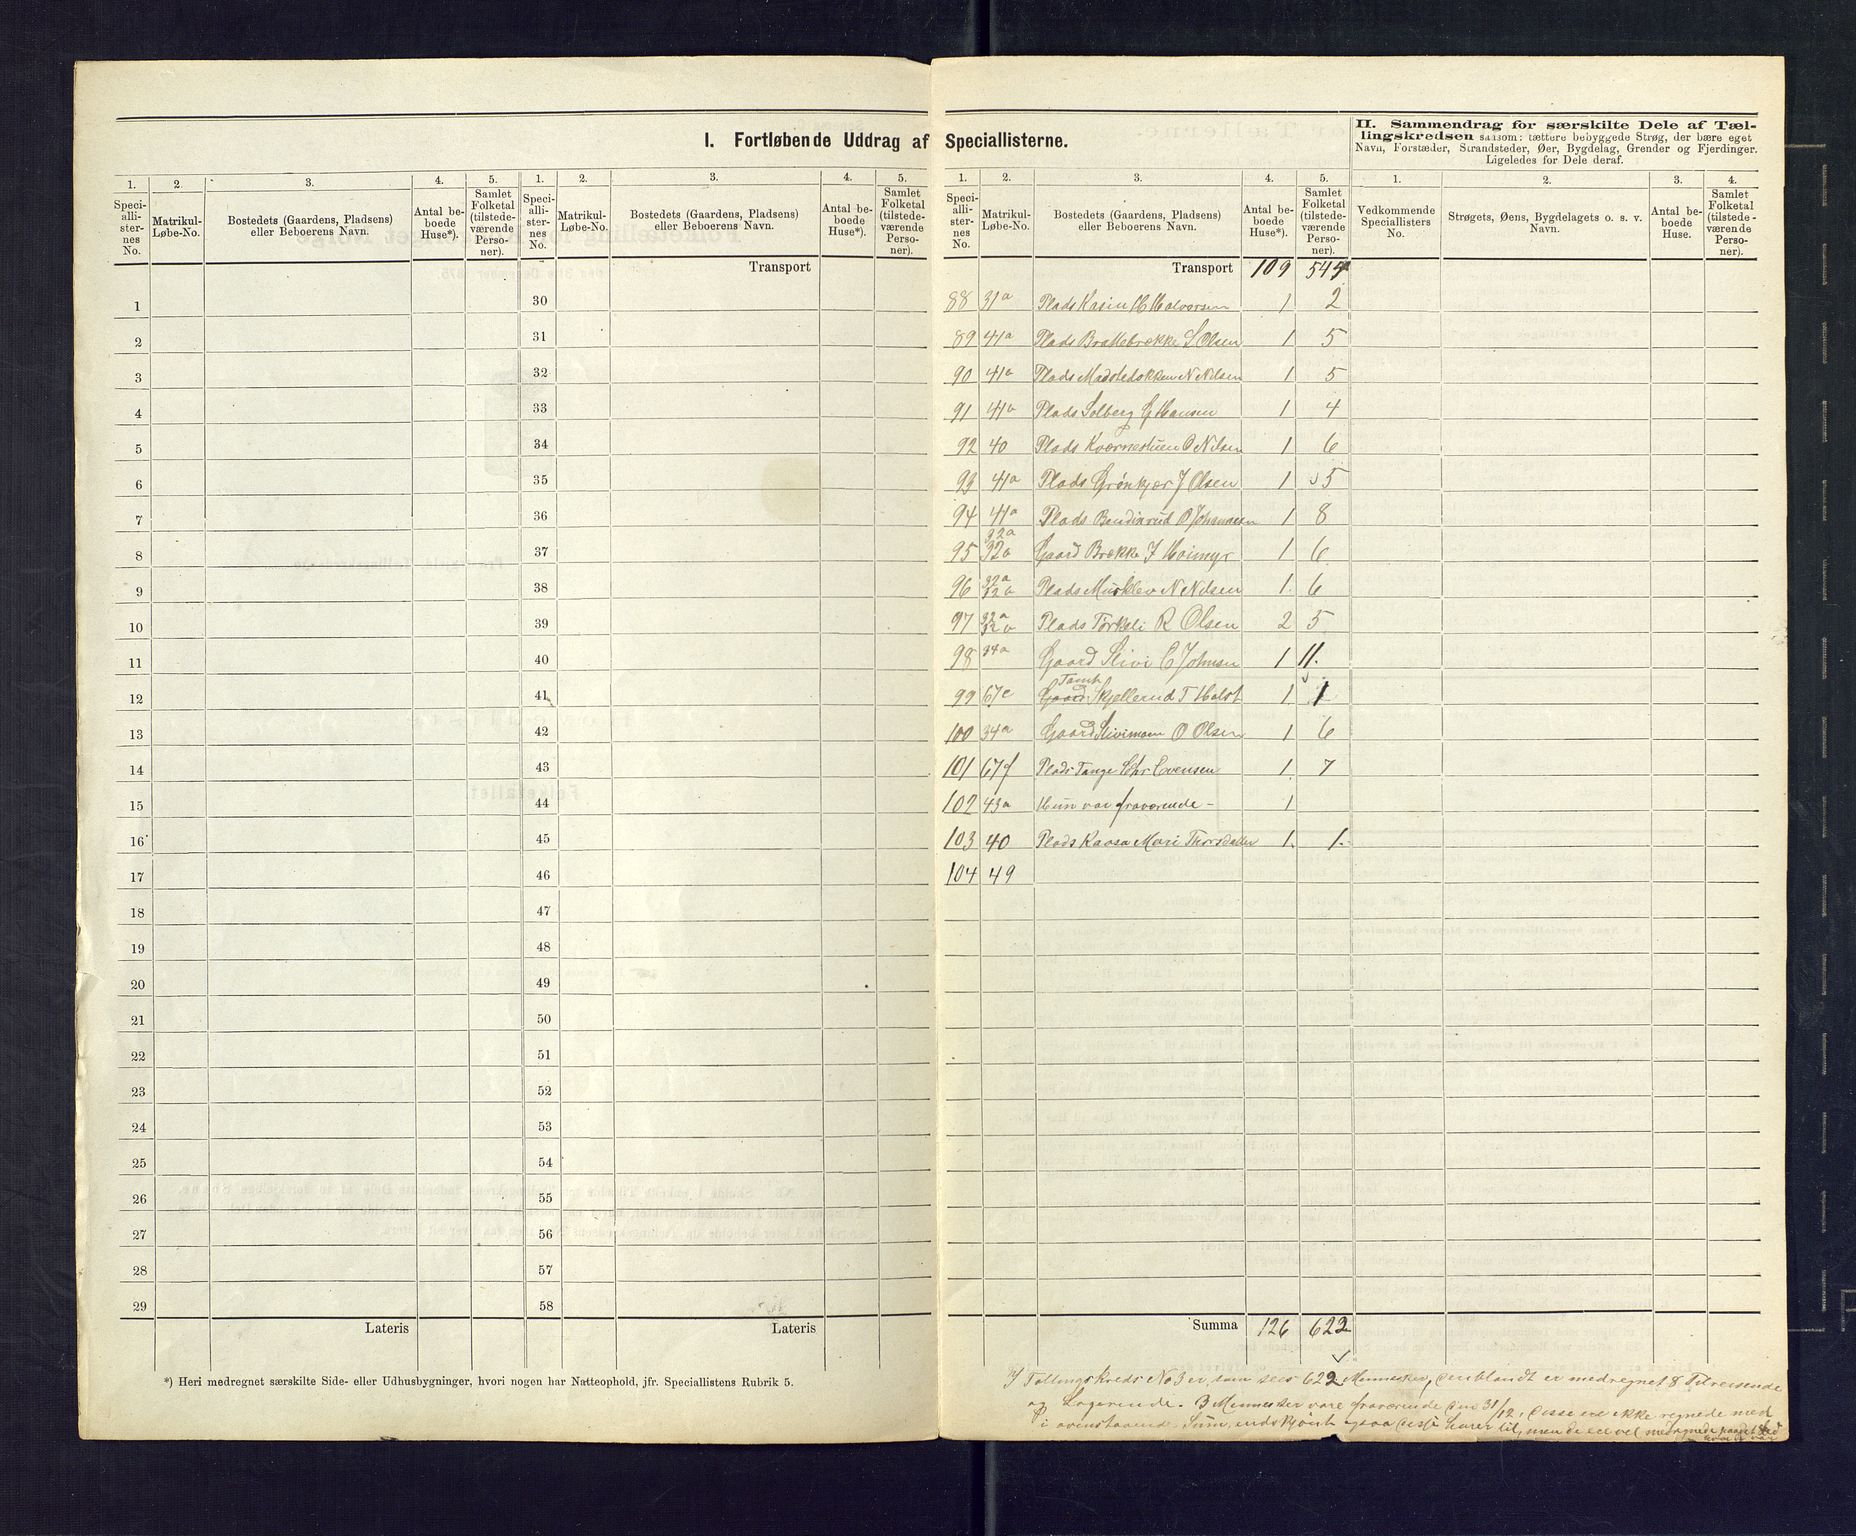 I. Fortløbende Uddrag af Speciallisterne.
1. 2. 3. 4. 5. 1. 2. 3. 4. 5.
Speciallisternes No. Matrikul-Løbe-No. Bostedets (Gaardens, Pladsens) eller Beboerens Navn. Antal beboede Huse*). Samlet Folketal (tilstedeværende Personer).
Speciallisternes No. Matrikul-Løbe-No. Bostedets (Gaardens, Pladsens) eller Beboerens Navn. Antal beboede Huse*). Samlet Folketal (tilstedeværende Personer).
Transport
1 30
2 31
3 32
4 33
5 34
6 35
7 36
8 37
9 38
10 39
11 40
12 41
13 42
14 43
15 44
16 45
17 46
18 47
19 48
20 49
21 50
22 51
23 52
24 53
25 54
26 55
27 56
28 57
29 58
Lateris Lateris
*) Heri medregnet særskilte Side- eller Udhusbygninger, hvori nogen har Natteophold, jfr. Speciallistens Rubrik 5.
II. Sammendrag for særskilte Dele af Tællingskredsen saasom: tættere bebyggede Strøg, der bære eget
Navn, Forstæder, Strandsteder, Øer, Bygdelag, Grender og Fjerdinger.
Ligeledes for Dele deraf.
1. 2. 3. 4. 5. 1. 2. 3. 4.
Speciallisternes No. Matrikul-Løbe-No. Bostedets (Gaardens, Pladsens) eller Beboerens Navn. Antal beboede Huse*). Samlet Folketal (tilstedeværende Personer).
Vedkommende Speciallisters No. Strøgets, Øens, Bygdelagets o. s. v. Navn. Antal beboede Huse. Samlet Folketal (tilstedeværende Personer).
Transport 109
88 31a Plads Kasin H Halvorsen 1 2
89 41a Plads Brattebrække S Olsen 1 5
90 41a Plads N Nilsen 1 5
91 41a Plads Solberg G Hansen 1 4
92 40 Plads Kværnestuen O Nilsen 1 6
93 41a Plads Grønkjær J Olsen 1 5
94 41a Plads Bendixrud O Johannesen 1 8
95 32a 32a Gaard Brække J Hoimyr 1 6
96 32a 32a Plads Mursklev N Nilsen 1. 6
97 32a 32a Plads Tørkeli R Olsen 2 5
98 34a Gaard Slivi C Johnsen 1 11.
99 67e Gaard Tomt Skjellerud T Holst 1. 1
100 34a Gaard O Olsen 1 6
101 67f Plads Tange Chr Evensen 1. 7
102 43a Hun var fraværende - 1
103 40 Plads Kaasa Mari Thorsdatter 1. 1.
104 49
Summa 126 622
I Tællingskreds No 3 er, som sees 622 Mennesker, deriblandt er medregnet 8 Tilreisende
og Logerende. 3 Mennesker vare fraværende den 31/12, disse ere ikke regnede med
i ovenstaaende Sum, endskjønt disse hører til, men de ere vel medregnede paa det Sted
hvor de var